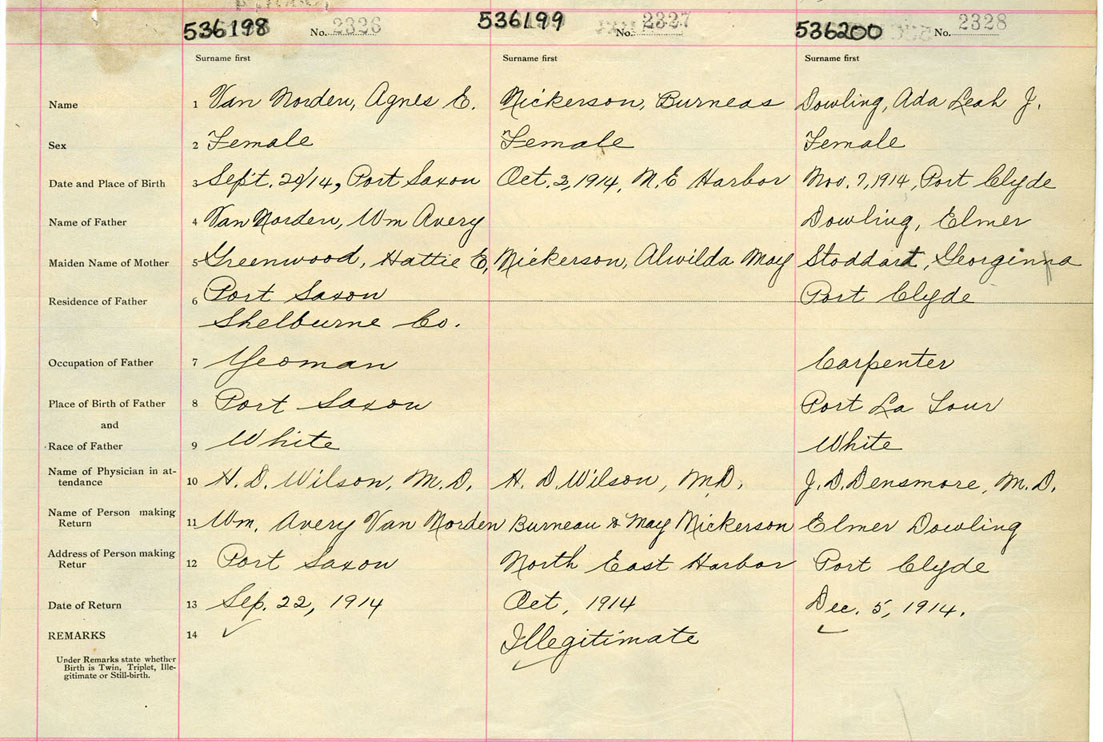 536198 No. 2326 536199 No. 2327 536200 No. 2328
Surname first Surname first Surname first
Name 1 Van Norden, Agnes E. Nickerson, Burneas Dowling, Ada Leah J.
Sex 2 Female Female Female
Date and Place of Birth 3 Sep't. 20/14, Port Saxon Oct. 2, 1914, N.E Harbor Nov. 7, 1914, Port Clyde
Name of Father 4 Van Norden, Wm Avery Dowling, Elmer
Maiden Name of Mother 5 Greenwood, Hattie E, Nickerson, Alwilda May Stoddart, Georginna
Residence of Father 6 Port Saxon Port Clyde
Shelburne Co.
Occupation of Father 7 Yeoman Carpenter
Place of Birth of Father 8 Port Saxon Port La Tour
and
Race of Father 9 White White
Name of Physician in at-
tendance 10 H. D. Wilson, M.D. H. D. Wilson, M.D. J. D. Densmore, M.D.
Name of Person making
Return 11 Wm. Avery Van Norden Burneau & May Nickerson Elmer Dowling
Address of Person making
Retur 12 Port Saxon North East Harbor Port Clyde
Date of Return 13 Sep. 22, 1914 Oct, 1914 Dec. 5, 1914.
REMARKS 14 Illegitimate
Under Remarks state whether
Birth is Twin, Triplet, Ille-
gitimate or Still-birth.